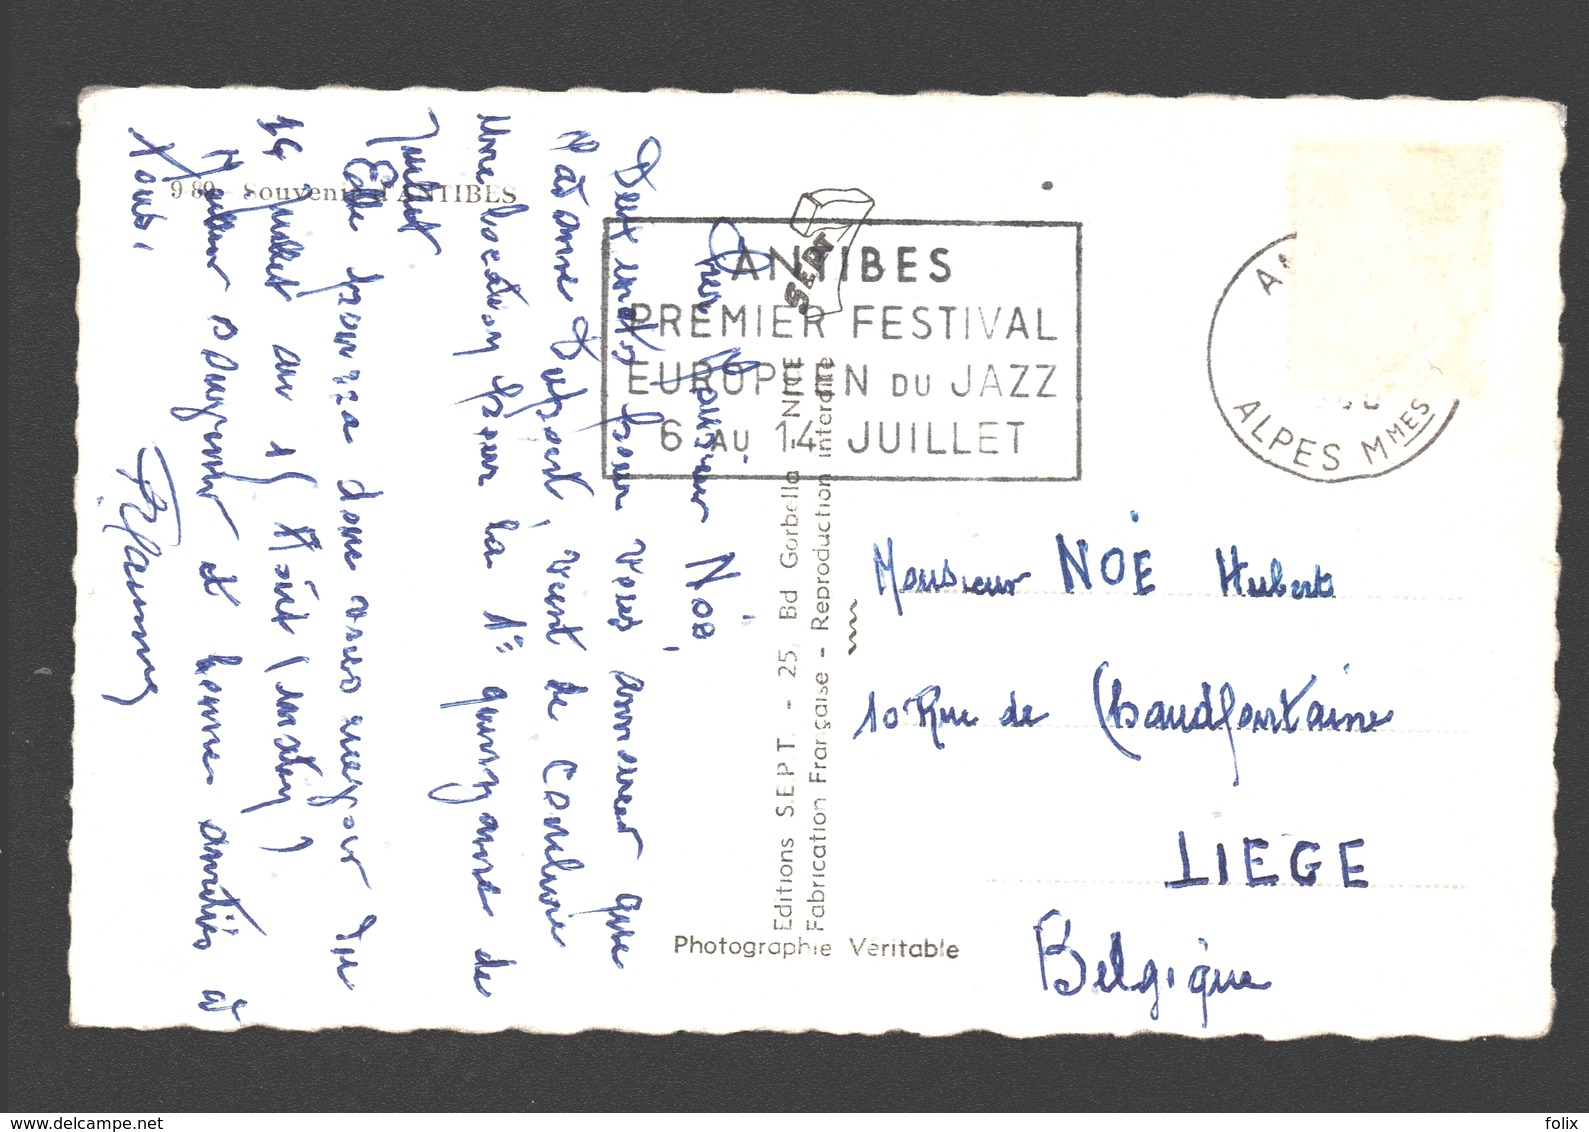 9-80 - Souvenir d'ANTIBES
SEPT
ANTIBES
PREMIER FESTIVAL
EUROPÉEN DU JAZZ
6 AU 14 JUILLET
ALPES MMES
Cher Monsieur Noë,
Deux mots pour vous annoncer que
Madame Dupont, vient de conclure
une location pour la 1e quinzaine de
Juillet
Elle pourra donc vous recevoir du
14 Juillet au 15 Août (matin)
Meilleur souvenir et bonnes amitiés à
tous.
Monsieur NOË Hubert
10 Rue de Chaudfontaine
LIEGE
Belgique
Editions S.E.P.T. - 25, Bd Gorbella - NICE
Fabrication Française - Reproduction interdite
Photographie Véritable
www.delcampe.net
felix